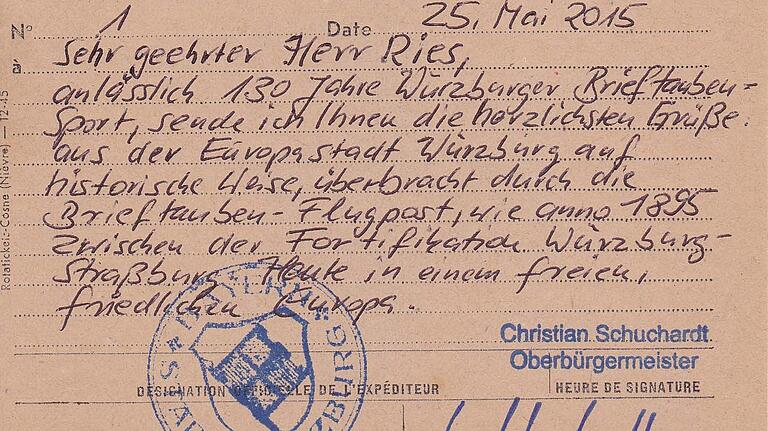 N° 1 Date 25. Mai 2015
à Sehr geehrter Herr Ries,
anlässlich 130 Jahre Würzburger Brieftauben-
Sport, sende ich Ihnen die herzlichsten Grüße
aus der Europastadt Würzburg auf
historische Weise, überbracht durch die
Brieftauben-Flugpost, wie anno 1895
zwischen der Fortifikation Würzburg-
Straßburg. Heute in einem freien,
friedlichen Europa.
Christian Schuchardt
Oberbürgermeister
DÉSIGNATION OFFICIELLE DE L'EXPÉDITEUR HEURE DE SIGNATURE
Rotaticket-Cosne (Nièvre) — 12-45